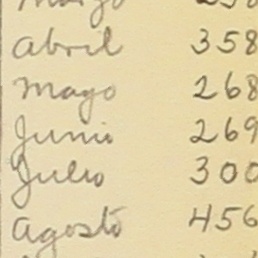 Marzo
Abril 358
Mayo 268
Junio 269
Julio 300
Agosto 456